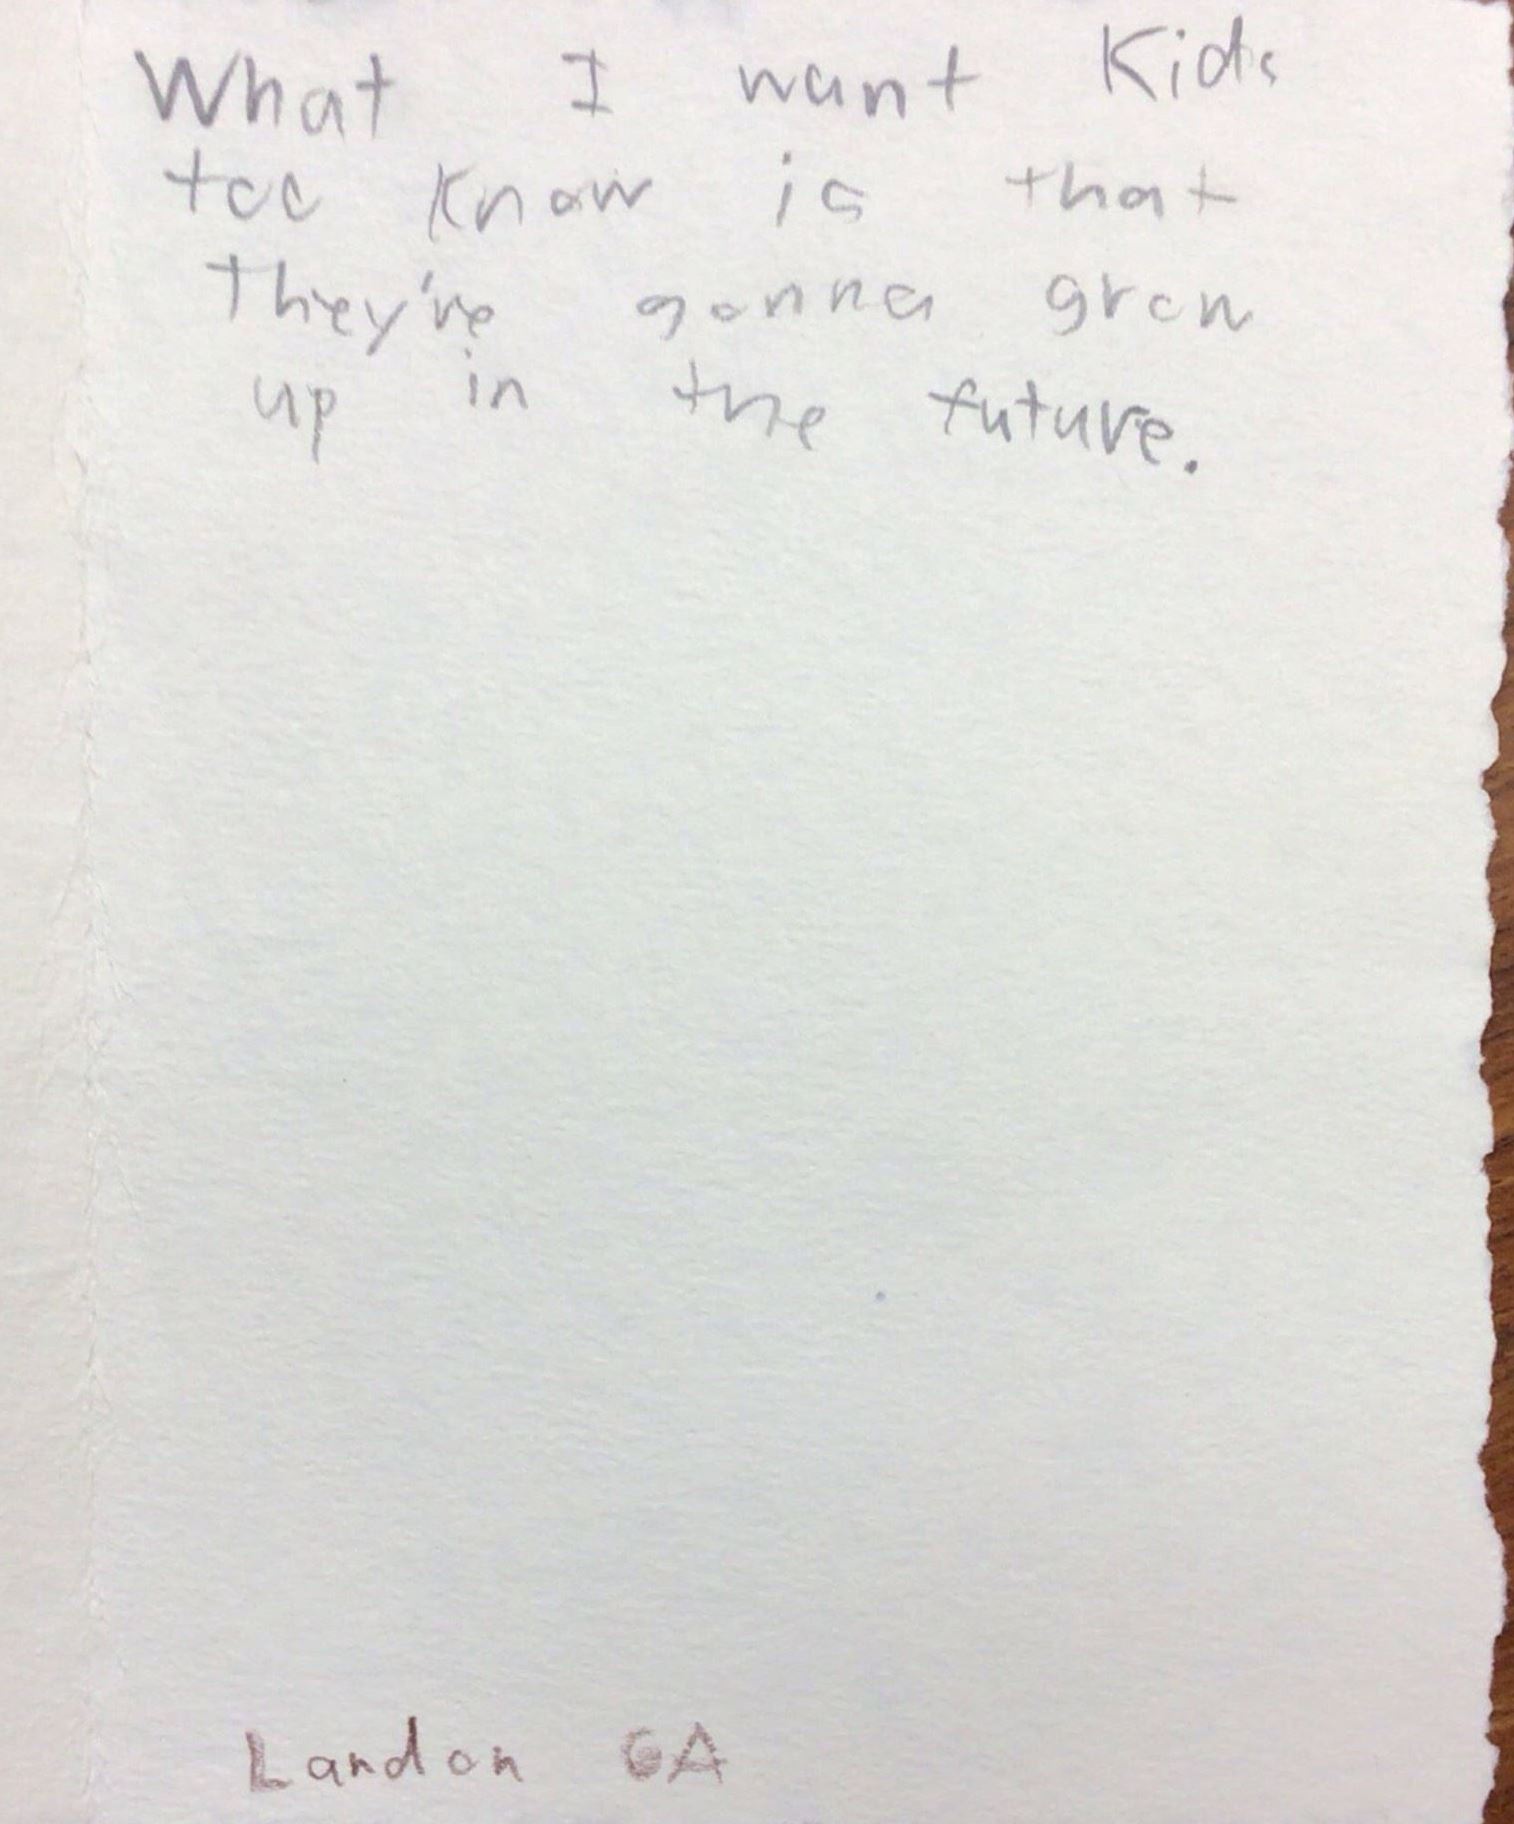 What I want Kids
too know is that
They're gonna grow
up in the future.
Landon 6A